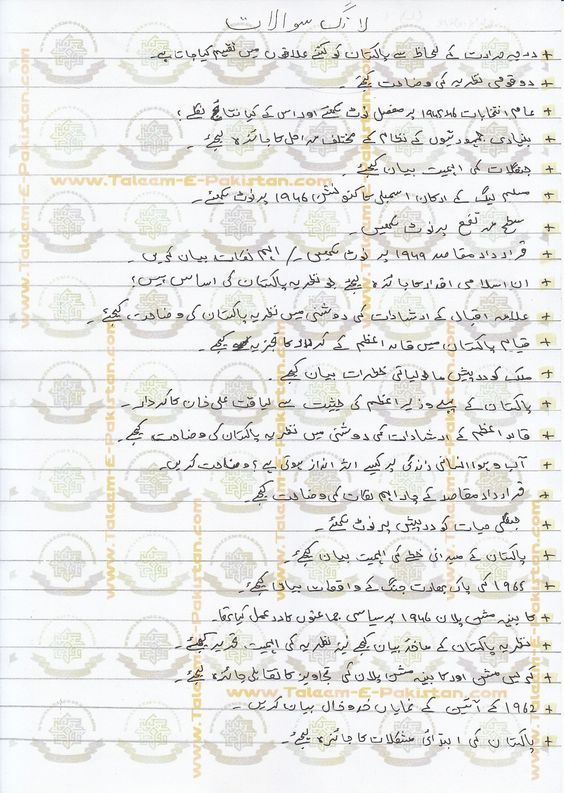 لانگ سوالات
+ درجہ حرارت کے لحاظ سے پاکستان کو کتنے علاقوں میں تقسیم کیا جاتا ہے۔
+ دو قومی نظریہ کی وضاحت کیجئے۔
+ عام انتخابات 1945-46 پر مفصل نوٹ لکھئے اور اس کے کیا نتائج نکلے؟
+ بنیادی جمہوریتوں کے نظام کے مختلف مراحل کا جائزہ لیجئے۔
+ جنگلات کی اہمیت بیان کیجئے۔
+ مسلم لیگ کے ارکان اسمبلی کا کنونشن 1946 پر نوٹ لکھئے۔
+ سطح مرتفع پر نوٹ لکھیں۔
+ قرارداد مقاصد 1949 پر نوٹ لکھیں۔ / اہم نکات بیان کریں۔
+ ان اسلامی اقدار کا جائزہ لیجئے جو نظریہ پاکستان کی اساس ہیں؟
+ علامہ اقبال کے ارشادات کی روشنی میں نظریہ پاکستان کی وضاحت کیجئے۔
+ قیام پاکستان میں قائداعظم کے کردار کا تجزیہ کیجئے۔
+ ملک کو درپیش ماحولیاتی خطرات بیان کیجئے۔
+ پاکستان کے پہلے وزیراعظم کی حیثیت سے لیاقت علی خان کا کردار۔
+ قائداعظم کے ارشادات کی روشنی میں نظریہ پاکستان کی وضاحت کیجئے۔
+ آب و ہوا انسانی زندگی پر کیسے اثر انداز ہوتی ہے؟ وضاحت کریں۔
+ قرارداد مقاصد کے چار اہم نکات کی وضاحت کیجئے۔
+ جنگلی حیات کو درپیش پر نوٹ لکھئے۔
+ پاکستان کے میدانی خطے کی اہمیت بیان کیجئے۔
+ 1965 کی پاک بھارت جنگ کے واقعات بیان کیجئے۔
+ کابینہ مشن پلان 1946 پر سیاسی جماعتوں کا ردعمل کیا تھا۔
+ نظریہ پاکستان کے ماخذ بیان کیجئے نیز نظریہ کی اہمیت تحریر کیجئے۔
+ کرپس مشن اور کابینہ مشن پلان کی تجاویز کا تقابلی جائزہ لیجئے۔
+ 1962 کے آئین کے نمایاں خدوخال بیان کریں۔
+ پاکستان کی ابتدائی مشکلات کا جائزہ لیجئے۔
www.Taleem-E-Pakistan.com